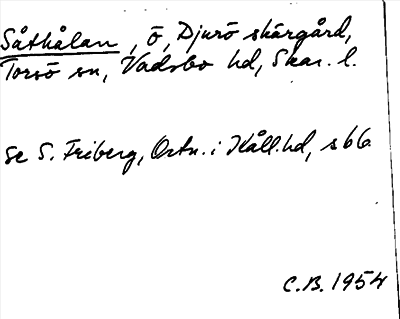 Såthålan, ö, Djurö skärgård,
Torsö sn, Vadsbo hd, Skar. l.
se S. Friberg, Ortn. i Kåll.hd, s 66
C.B. 1954